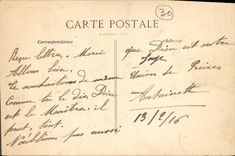 30
CARTE POSTALE
Correspondance
Reçu lettre, Merci
Allons bien.
Comme tu le dis, Dieu
est le Maître; il
peut, tout.
N'oublions pas aussi
que Dieu est notre
juge.
Union de Prières
Antoinette
13/2/16